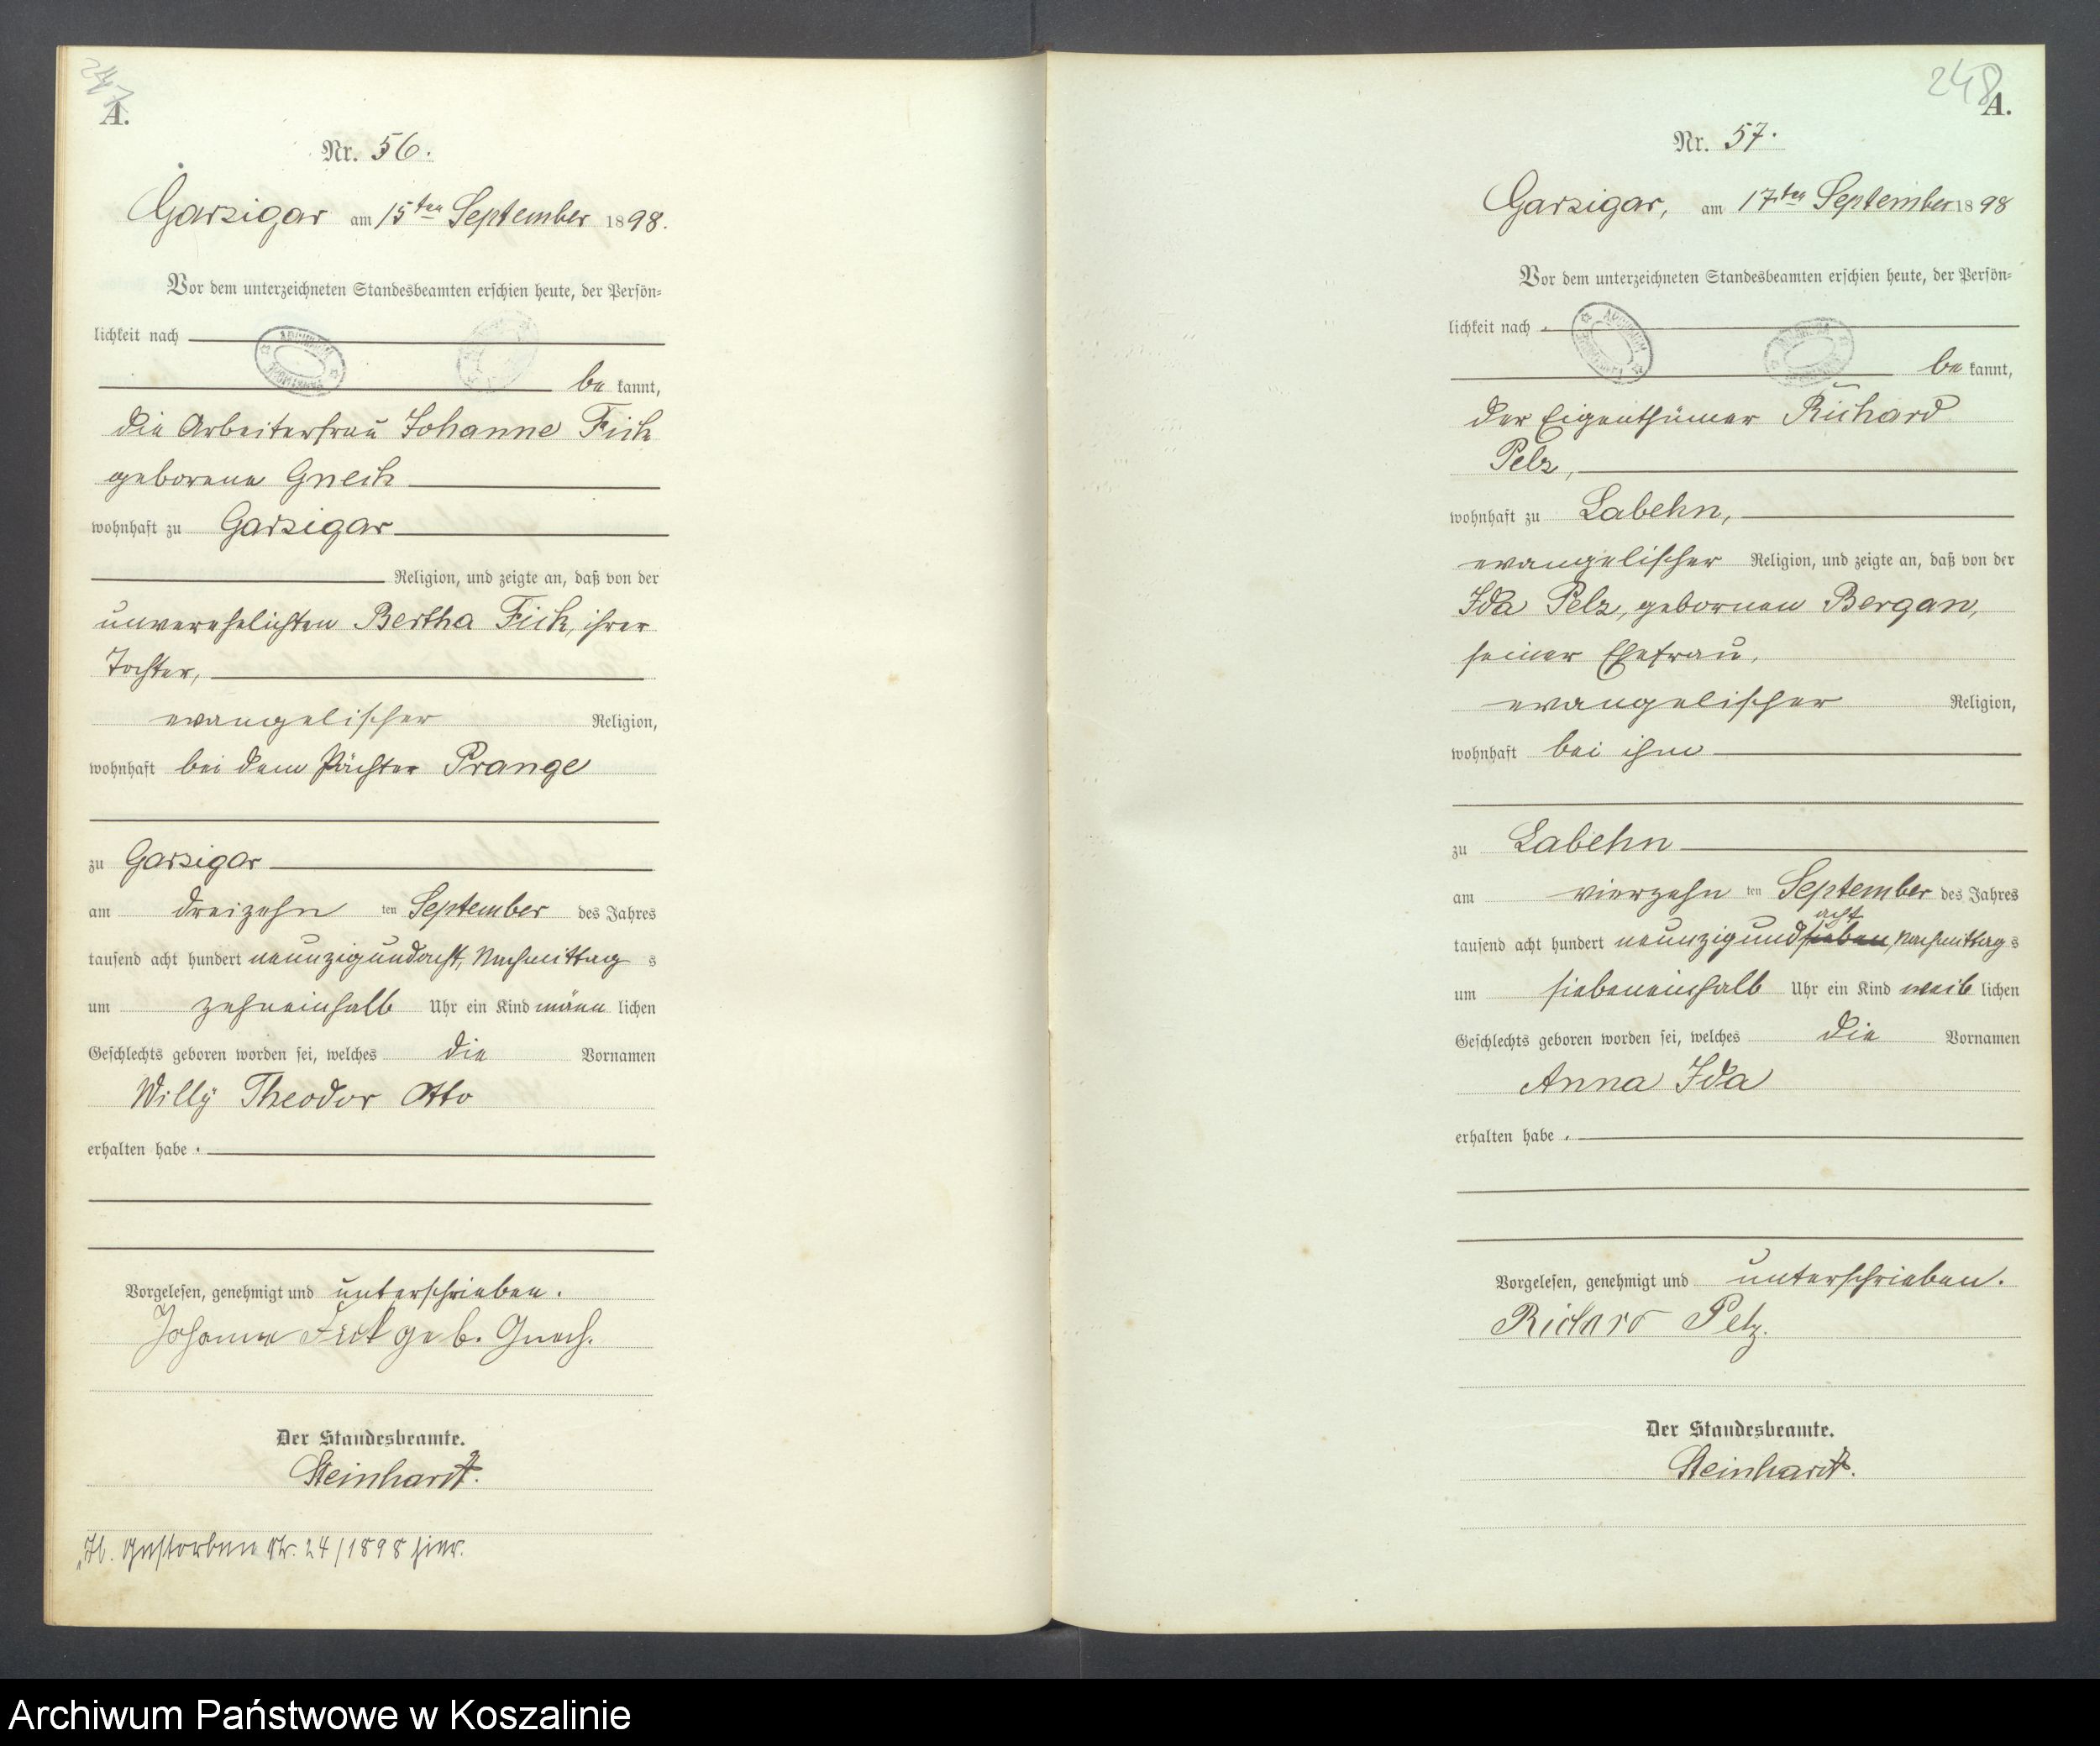 247
A.
Nr. 56.
Garzigar am 15ten September 1898.
Vor dem unterzeichneten Standesbeamten erschien heute, der Persön-
lichkeit nach
be kannt,
die Arbeiterfrau Johanne Fick
geborene Gnech
wohnhaft zu Garzigar
Religion, und zeigte an, daß von der
unverehelichten Bertha Fick, ihrer
Tochter,
evangelischer Religion,
wohnhaft bei dem Pächter Prange
zu Garzigar
am dreizehn ten September des Jahres
tausend acht hundert neunzigundacht, Nachmittag s
um zehneinhalb Uhr ein Kind männ lichen
Geschlechts geboren worden sei, welches die Vornamen
Willy Theodor Otto
erhalten habe .
Vorgelesen, genehmigt und unterschrieben.
Johanne Fick geb. Gnech.
Der Standesbeamte.
Steinhardt.
Gestorben Nr. 24/1898 hier.
248
A.
Nr. 57.
Garzigar, am 17ten September 1898
Vor dem unterzeichneten Standesbeamten erschien heute, der Persön-
lichkeit nach
be kannt,
der Eigenthümer Richard
Pelz,
wohnhaft zu Labehn,
evangelischer Religion, und zeigte an, daß von der
Ida Pelz, gebornen Bergan,
seiner Ehefrau,
evangelischer Religion,
wohnhaft bei ihm
zu Labehn
am vierzehn ten September des Jahres
acht
tausend acht hundert neunzigundsieben, Nachmittag s
um siebeneinhalb Uhr ein Kind weib lichen
Geschlechts geboren worden sei, welches die Vornamen
Anna Ida
erhalten habe .
Vorgelesen, genehmigt und unterschrieben.
Richard Pelz.
Der Standesbeamte.
Steinhardt.
Archiwum Państwowe w Koszalinie